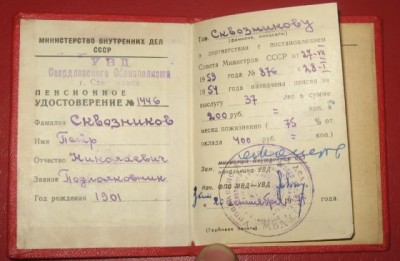 МИНИСТЕРСТВО ВНУТРЕННИХ ДЕЛ
СССР
УВД
Свердловского Облисполкома
ПЕНСИОННОЕ
УДОСТОВЕРЕНИЕ № 1446
Фамилия Сквозников
Имя Петр
Отчество Николаевич
Звание Подполковник
Год рождения 1901
Тов. Сквозникову
(фамилия, инициалы)
в соответствии с постановлением
Совета Министров СССР от 27-IV
1959 года № 876 с 28-I
1954 года назначена пенсия за
выслугу 37 лет в сумме
200 руб. коп. в
месяц пожизненно ( 75 % от
оклада 400 руб.
начальника УВД
ФПО МВД-УВД
20 октября 19 г.
(Гербовая печать)